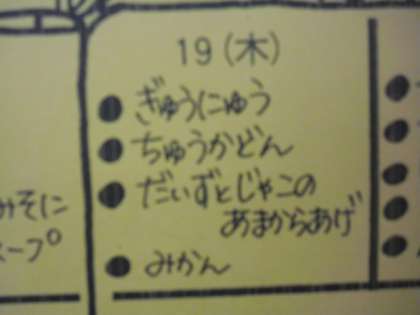 19(木)
ぎゅうにゅう
ちゅうかどん
だいずとじゃこの
あまからあげ
みかん
みそに
スープ